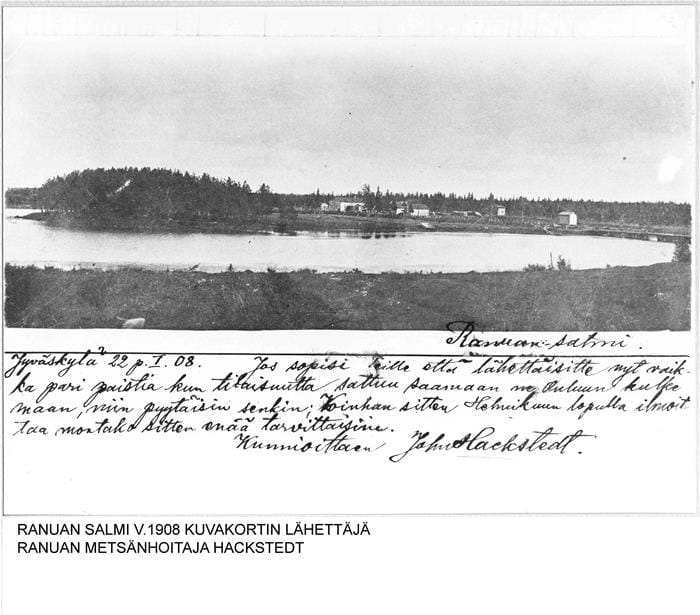 Ranuan salmi.
Jyväskylä 22 p. I. 08. Jos sopisi Teille että lähettäisitte nyt vaik-
ka pari paistia kun tilaisuutta sattuu saamaan Ouluun kulke
maan, niin pyytäisin senkin; Voinhan sitten Helmikuun lopulla ilmoit
taa montako sitten enää tarvittaisiin.
Kunnioittaen John Hackstedt.
RANUAN SALMI V.1908 KUVAKORTIN LÄHETTÄJÄ
RANUAN METSÄNHOITAJA HACKSTEDT